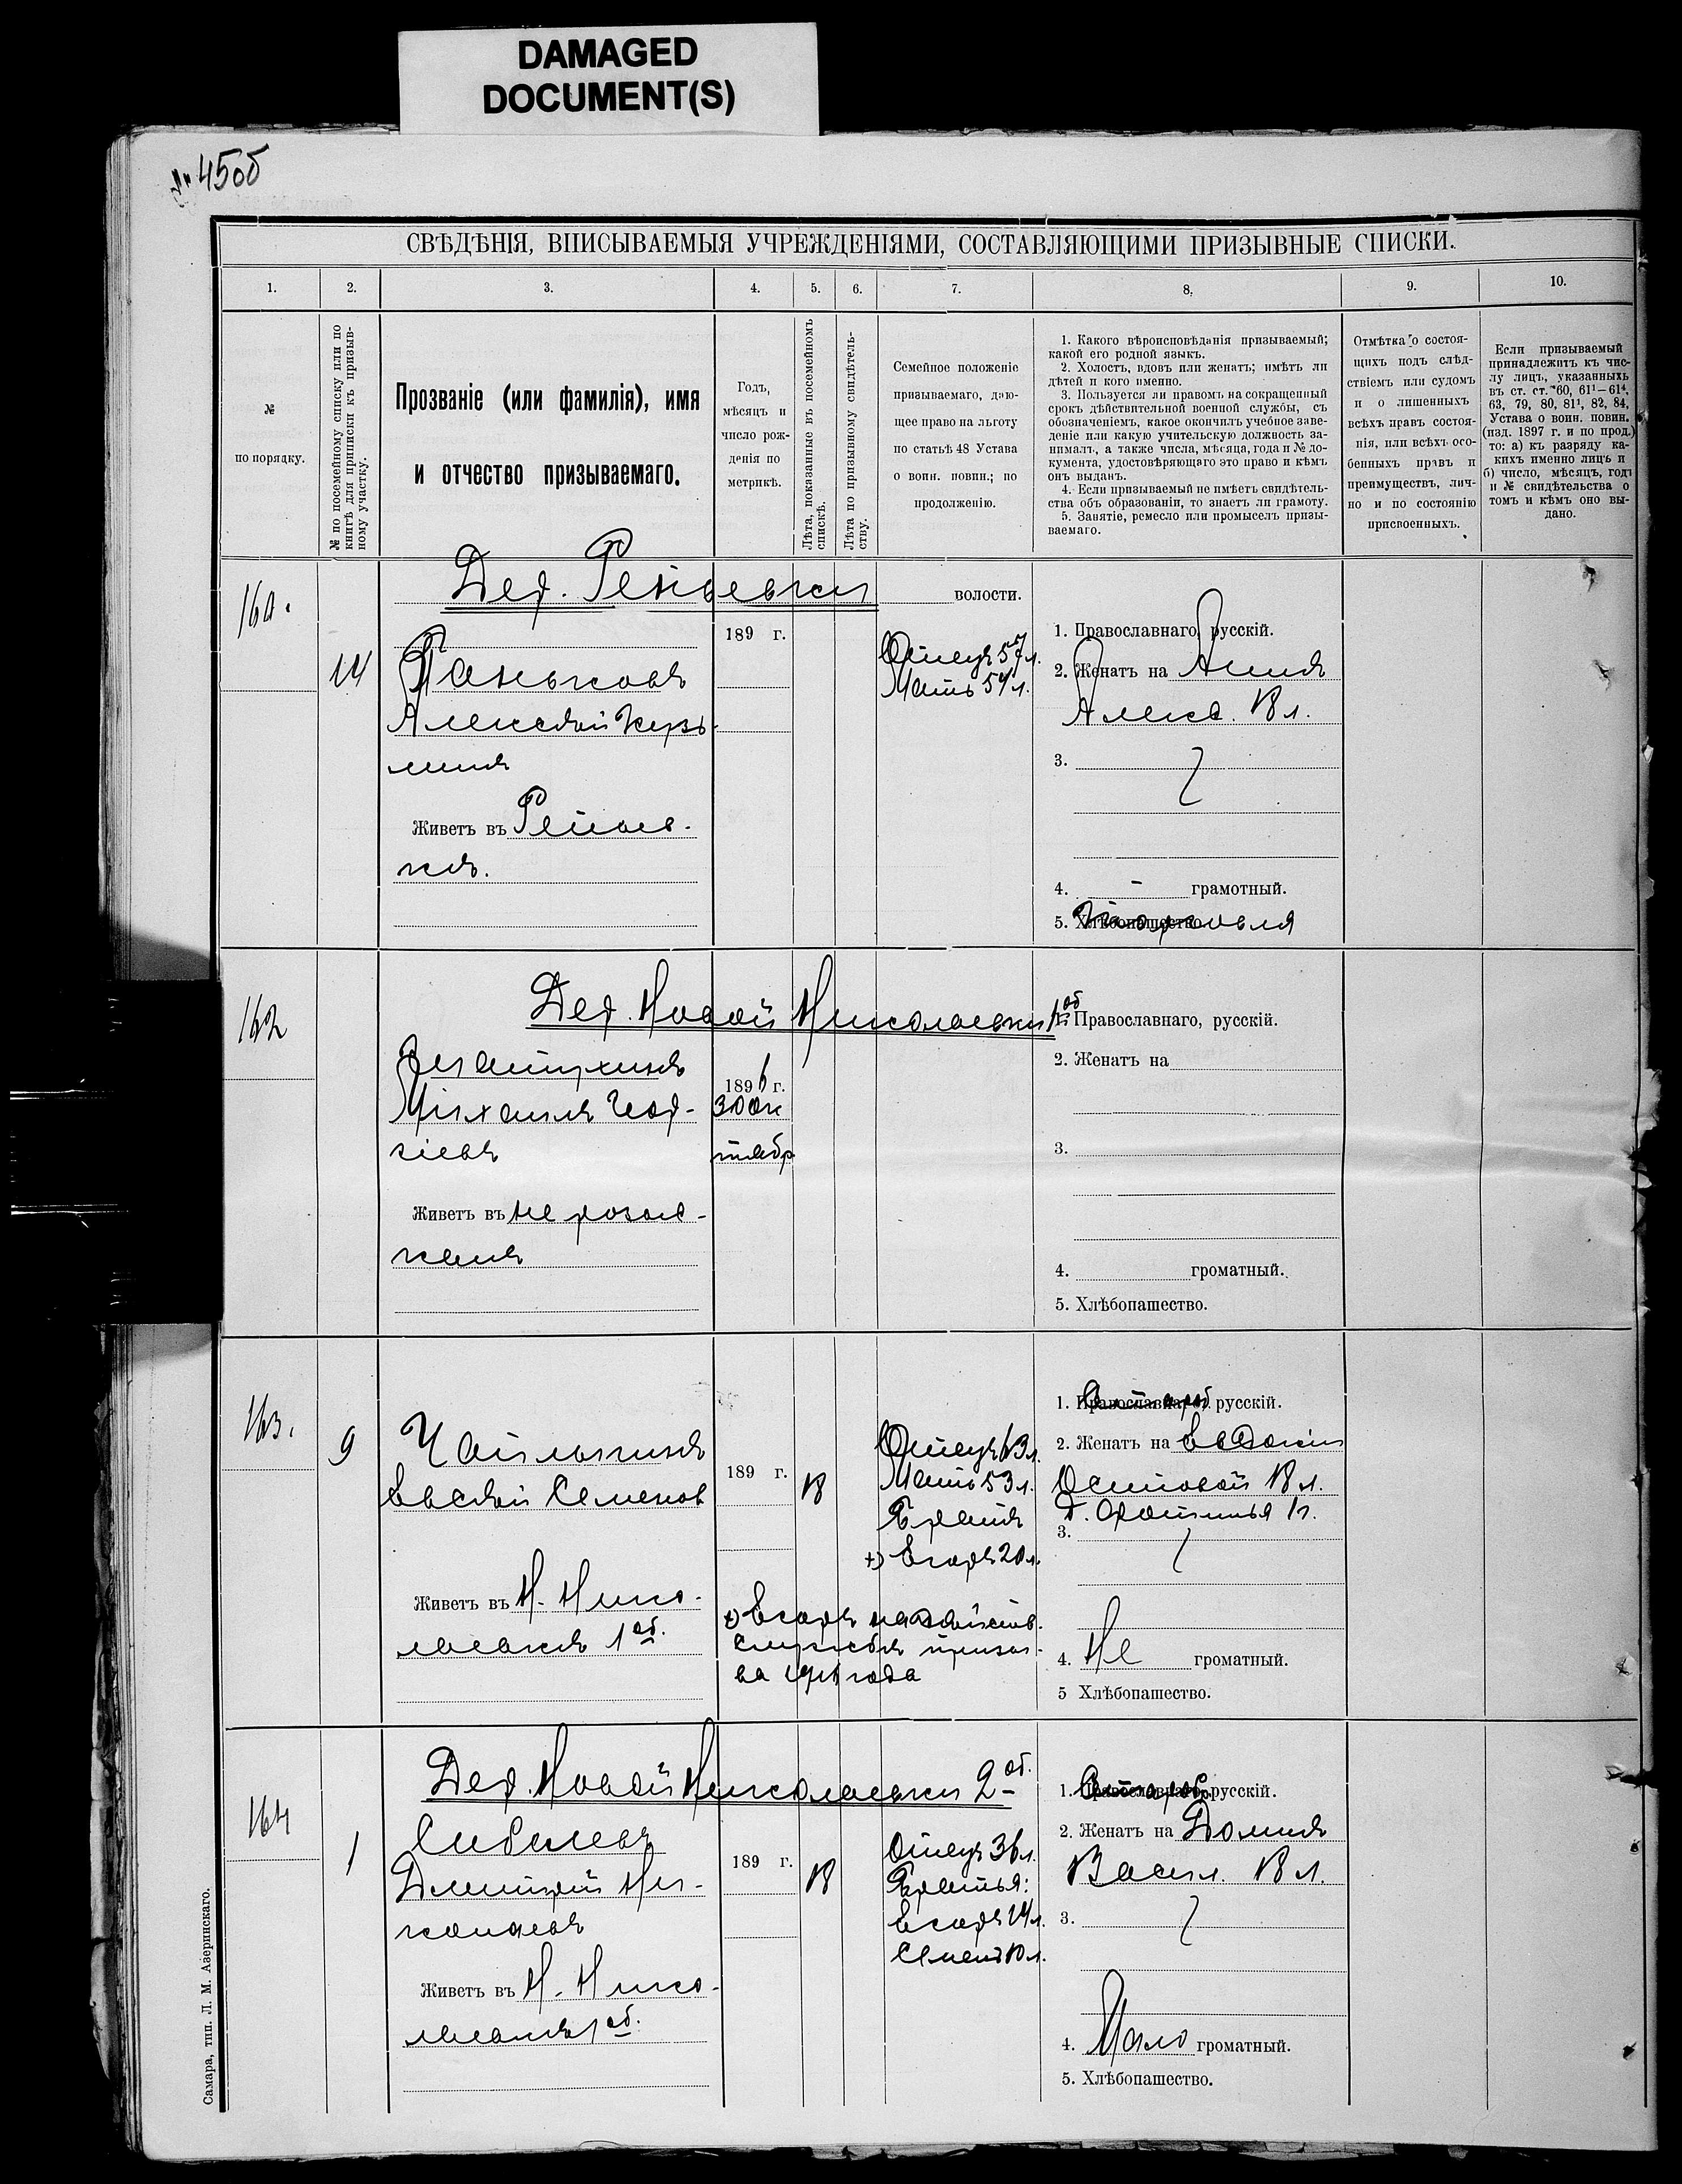 DAMAGED
DOCUMENT(S)
45об
СВѢДѢНІЯ, ВПИСЫВАЕМЫЯ УЧРЕЖДЕНІЯМИ, СОСТАВЛЯЮЩИМИ ПРИЗЫВНЫЕ СПИСКИ.
1. 2. 3. 4. 5. 6. 7. 8. 9. 10.
№
по порядку.
№ по посемейному списку или по
книгѣ для приписки къ призыв-
ному участку.
Прозваніе (или фамилія), имя
и отчество призываемаго.
Годъ,
мѣсяцъ и
число рож-
денія по
метрикѣ.
Лѣта, показанные въ посемейномъ
спискѣ.
Лѣта по призывному свидѣтель-
ству.
Семейное положеніе
призываемаго, даю-
щее право на льготу
по статьѣ 48 Устава
о воин. повин.; по
продолженію.
1. Какого вѣроисповѣданія призываемый;
какой его родной языкъ.
2. Холостъ, вдовъ или женатъ; имѣтъ ли
дѣтей и кого именно.
3. Пользуется ли правомъ на сокращенный
срокъ дѣйствительной военной службы, съ
обозначеніемъ, какое окончилъ учебное заве-
деніе или какую учительскую должность за-
нималъ, а также числа, мѣсяца, года и № до-
кумента, удостовѣряющаго это право и кѣмъ
онъ выданъ.
4. Если призываемый не имѣетъ свидѣтель-
ства объ образованіи, то знаетъ ли грамоту.
5. Занятіе, ремесло или промыселъ призы-
ваемаго.
Отмѣтка о состоя-
щихъ подъ слѣд-
ствіемъ или судомъ
и о лишенныхъ
всѣхъ правъ состоя-
нія, или всѣхъ осо-
бенныхъ правъ и
преимуществъ, лич-
но и по состоянію
присвоенныхъ.
Если призываемый
принадлежитъ къ чис-
лу лицъ, указанныхъ
въ ст. ст. 60, 61¹—61⁴,
63, 79, 80, 81¹, 82, 84,
Устава о воин. повин.
(изд. 1897 г. и по прод.)
то: а) къ разряду ка-
кихъ именно лицъ и
б) число, мѣсяцъ, годъ
и № свидѣтельства о
томъ и кѣмъ оно вы-
дано.
Дер.
волости.
14
Паньковъ
Алексѣй Кузь-
минъ
Живетъ въ
189 г.
Отецъ 57 л.
Мать 54 л.
1. Православнаго, русскій.
2. Женатъ на Аннѣ
Алекс. 18 л.
3.
4. грамотный.
5. Хлѣбопашество. Торговля
162
Дер. Новой Николаевки 1 об
Михаилъ Геор-
гіевъ
Живетъ въ не розыс-
канъ
1896 г.
30 ок
тябр
Православнаго, русскій.
2. Женатъ на
3.
4. громатный.
5. Хлѣбопашество.
163.
9
Евсѣй Семенов
Живетъ въ Н. Нико-
лаевкѣ 1 об.
189 г.
18
Отецъ 63 л.
Мать 53 л.
Братъ
+) Егоръ 20 л.
+) Егоръ на дѣйств.
службѣ призы-
ва 1916 года
1. Православнаго, русскій.
2. Женатъ на Евдокіи
Осиповой 18 л.
3.
4. Не громатный.
5 Хлѣбопашество.
Дер. Новой Николаевки 2 об.
164
1
Дмитрій Ни-
колаевъ
Живетъ въ Н. Нико-
лаевкѣ 1 об.
189 г.
18
Отецъ 36 л.
Братья:
Егоръ 14 л.
Семенъ 10 л.
1. Православнаго, русскій.
2. Женатъ на Домнѣ
Васил. 18 л.
3.
4. Мало громатный.
5. Хлѣбопашество.
Самара, тип. Л. М. Азеринскаго.